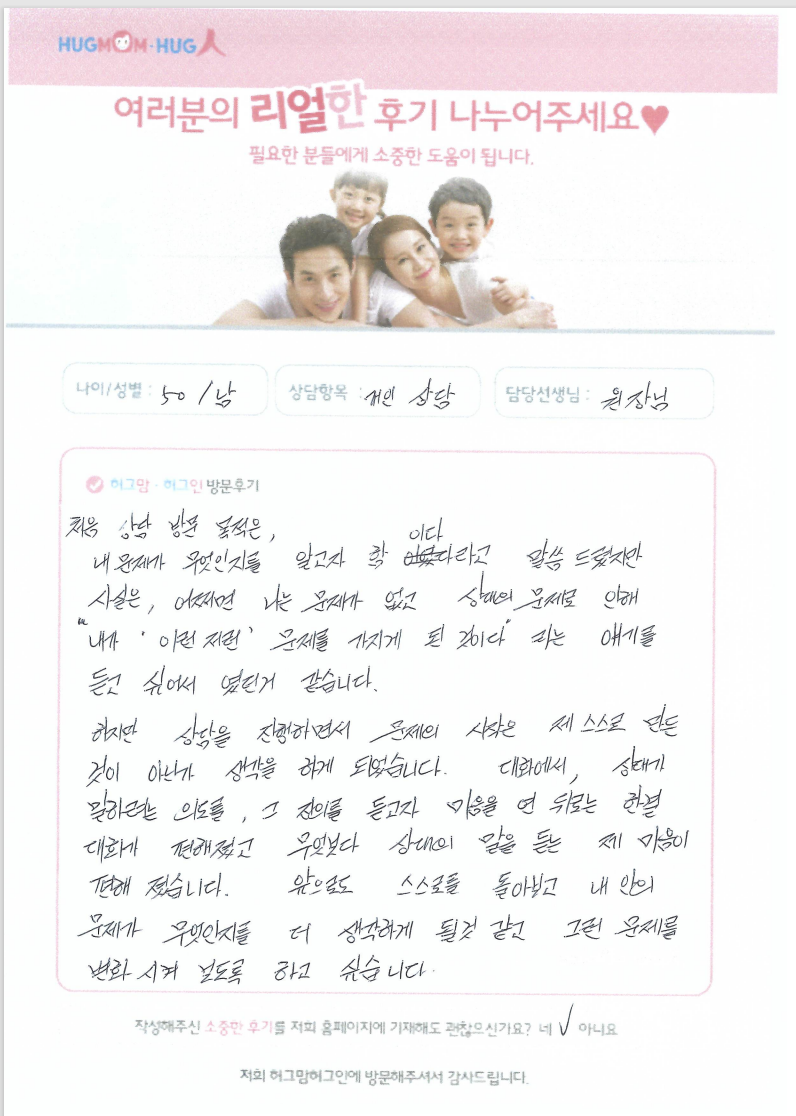 HUGMOM·HUG人
여러분의 리얼한 후기 나누어주세요♥
필요한 분들에게 소중한 도움이 됩니다.
나이/성별 : 50 / 남
상담항목 : 개인 상담
담당선생님 : 원장님
허그맘·허그인 방문후기
처음 상담 방문 목적은,
내 문제가 무엇인지를 알고자 함 이다라고 말씀 드렸지만
사실은, 어쩌면 나는 문제가 없고 상대의 문제로 인해
"내가 '이런 저런' 문제를 가지게 된 것이다" 라는 얘기를
듣고 싶어서 였던거 같습니다.
하지만 상담을 진행하면서 문제의 시작은 제 스스로 만든
것이 아닌가 생각을 하게 되었습니다. 대화에서, 상대가
말하려는 의도를, 그 진의를 듣고자 마음을 연 뒤로는 한결
대화가 편해졌고 무엇보다 상대의 말을 듣는 제 마음이
편해 졌습니다. 앞으로도 스스로를 돌아보고 내 안의
문제가 무엇인지를 더 생각하게 될것 같고 그런 문제를
변화 시켜 보도록 하고 싶습니다.
작성해주신 소중한 후기를 저희 홈페이지에 기재해도 괜찮으신가요? 네 √ 아니요
저희 허그맘허그인에 방문해주셔서 감사드립니다.